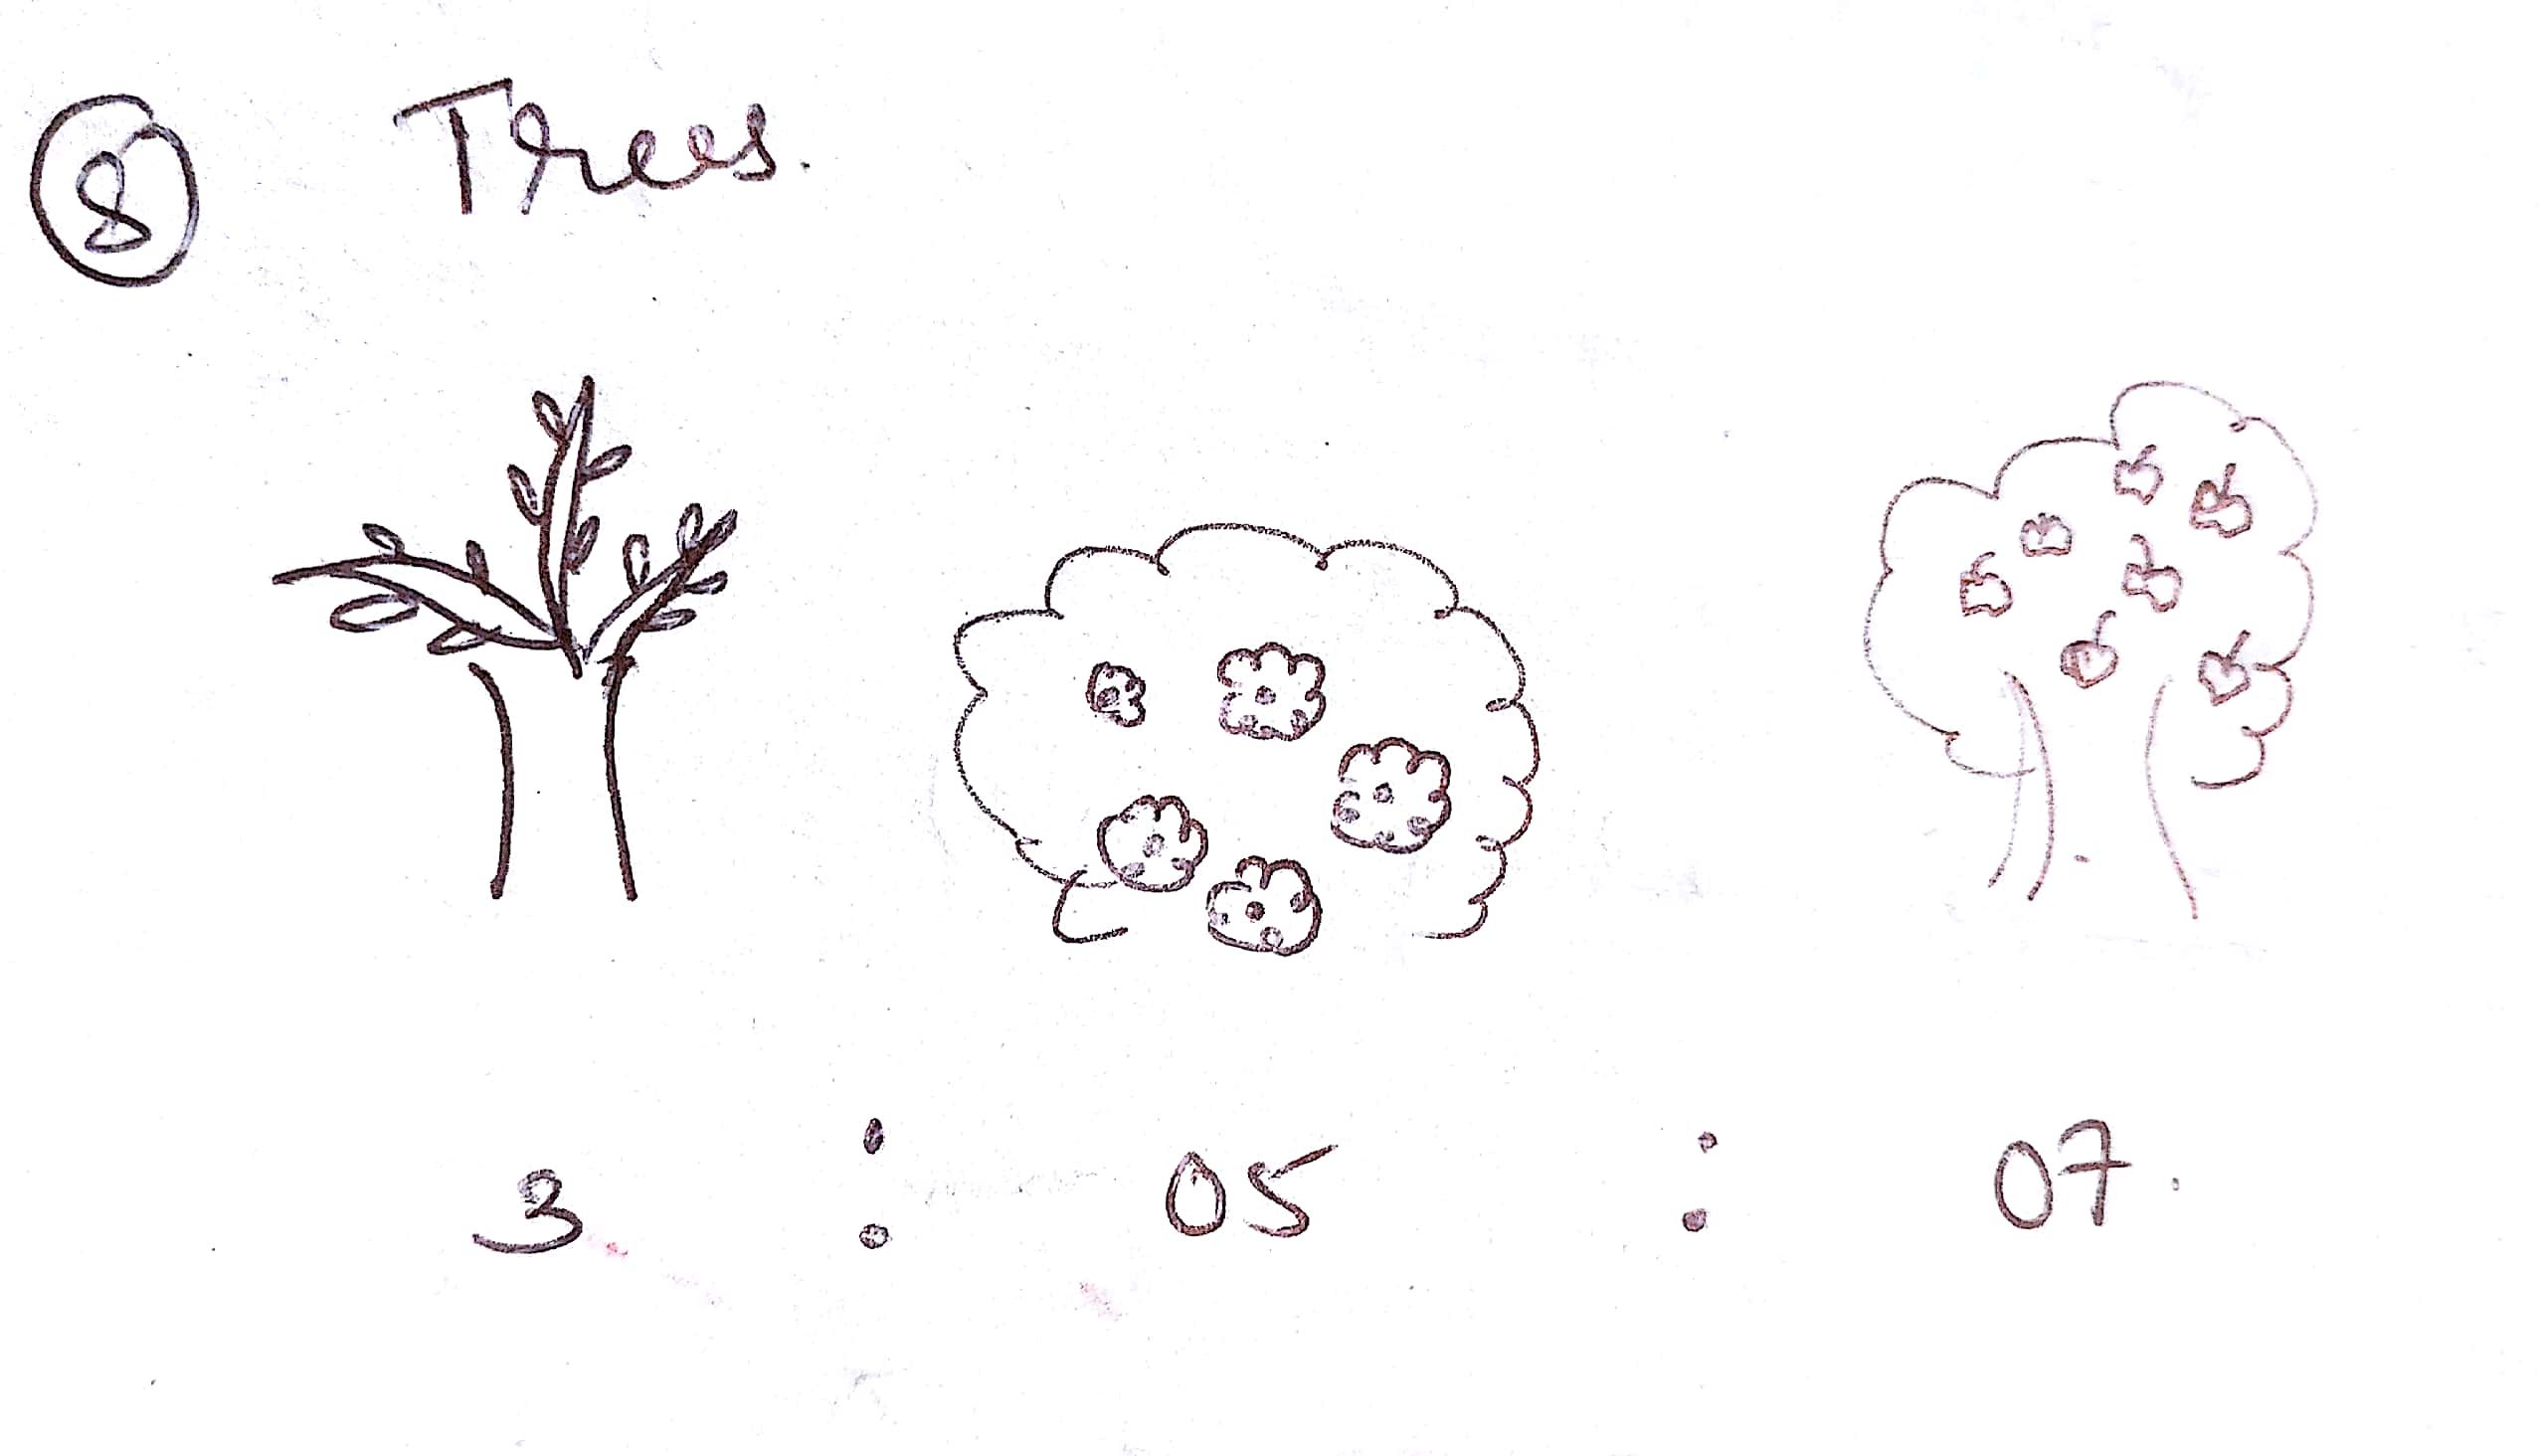 8 Trees.
3 : 05 : 07.